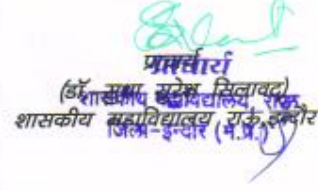 प्राचार्य
प्राचार्य
(डॉ. सुधा सुरेश सिलावट)
शासकीय महाविद्यालय, राऊ
शासकीय महाविद्यालय राऊ, इन्दौर
जिला-इन्दौर (म.प्र.)